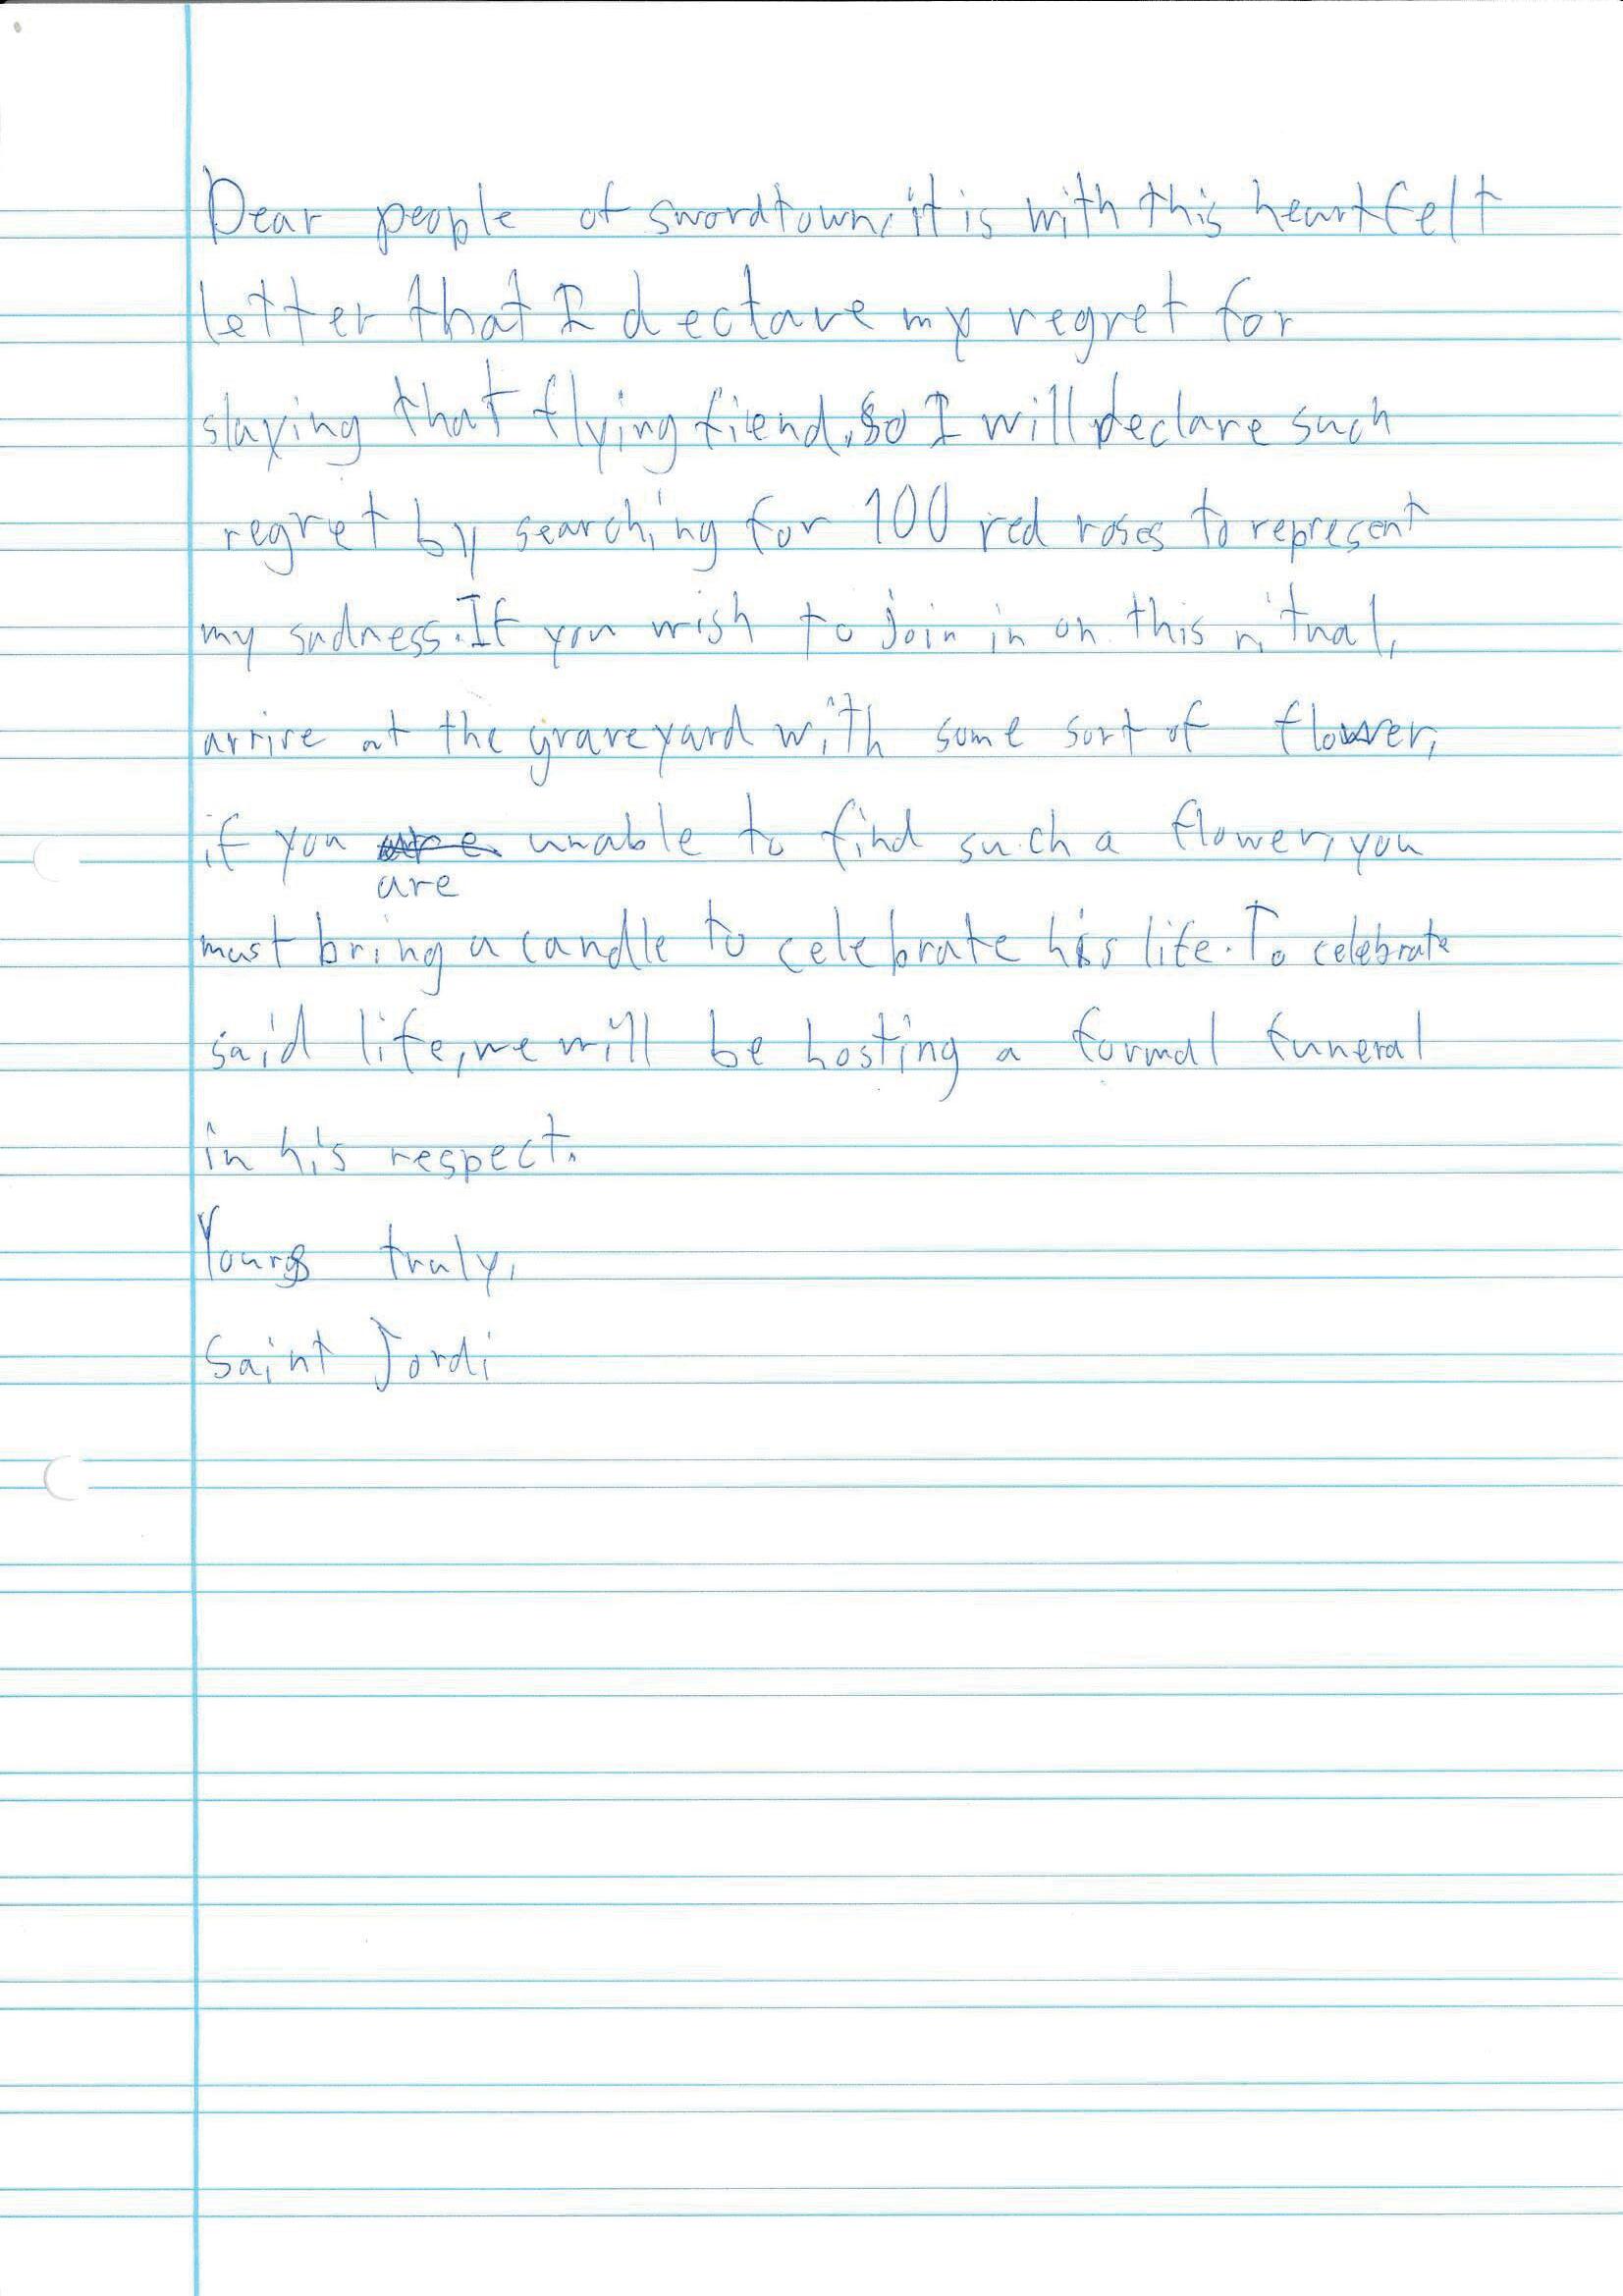 Dear people of swordtown, it is with this heartfelt
letter that I dectare my regret for
slaying that flying fiend. So I will declare such
regret by searching for 100 red roses to represent
my sadness. If you wish to join in on this ritual,
arrive at the graveyard with some sort of flower,
if you are unable to find such a flower, you
must bring a candle to celebrate his life. To celebrate
said life, we will be hosting a formal funeral
in his respect.
Yours truly,
Saint Jordi